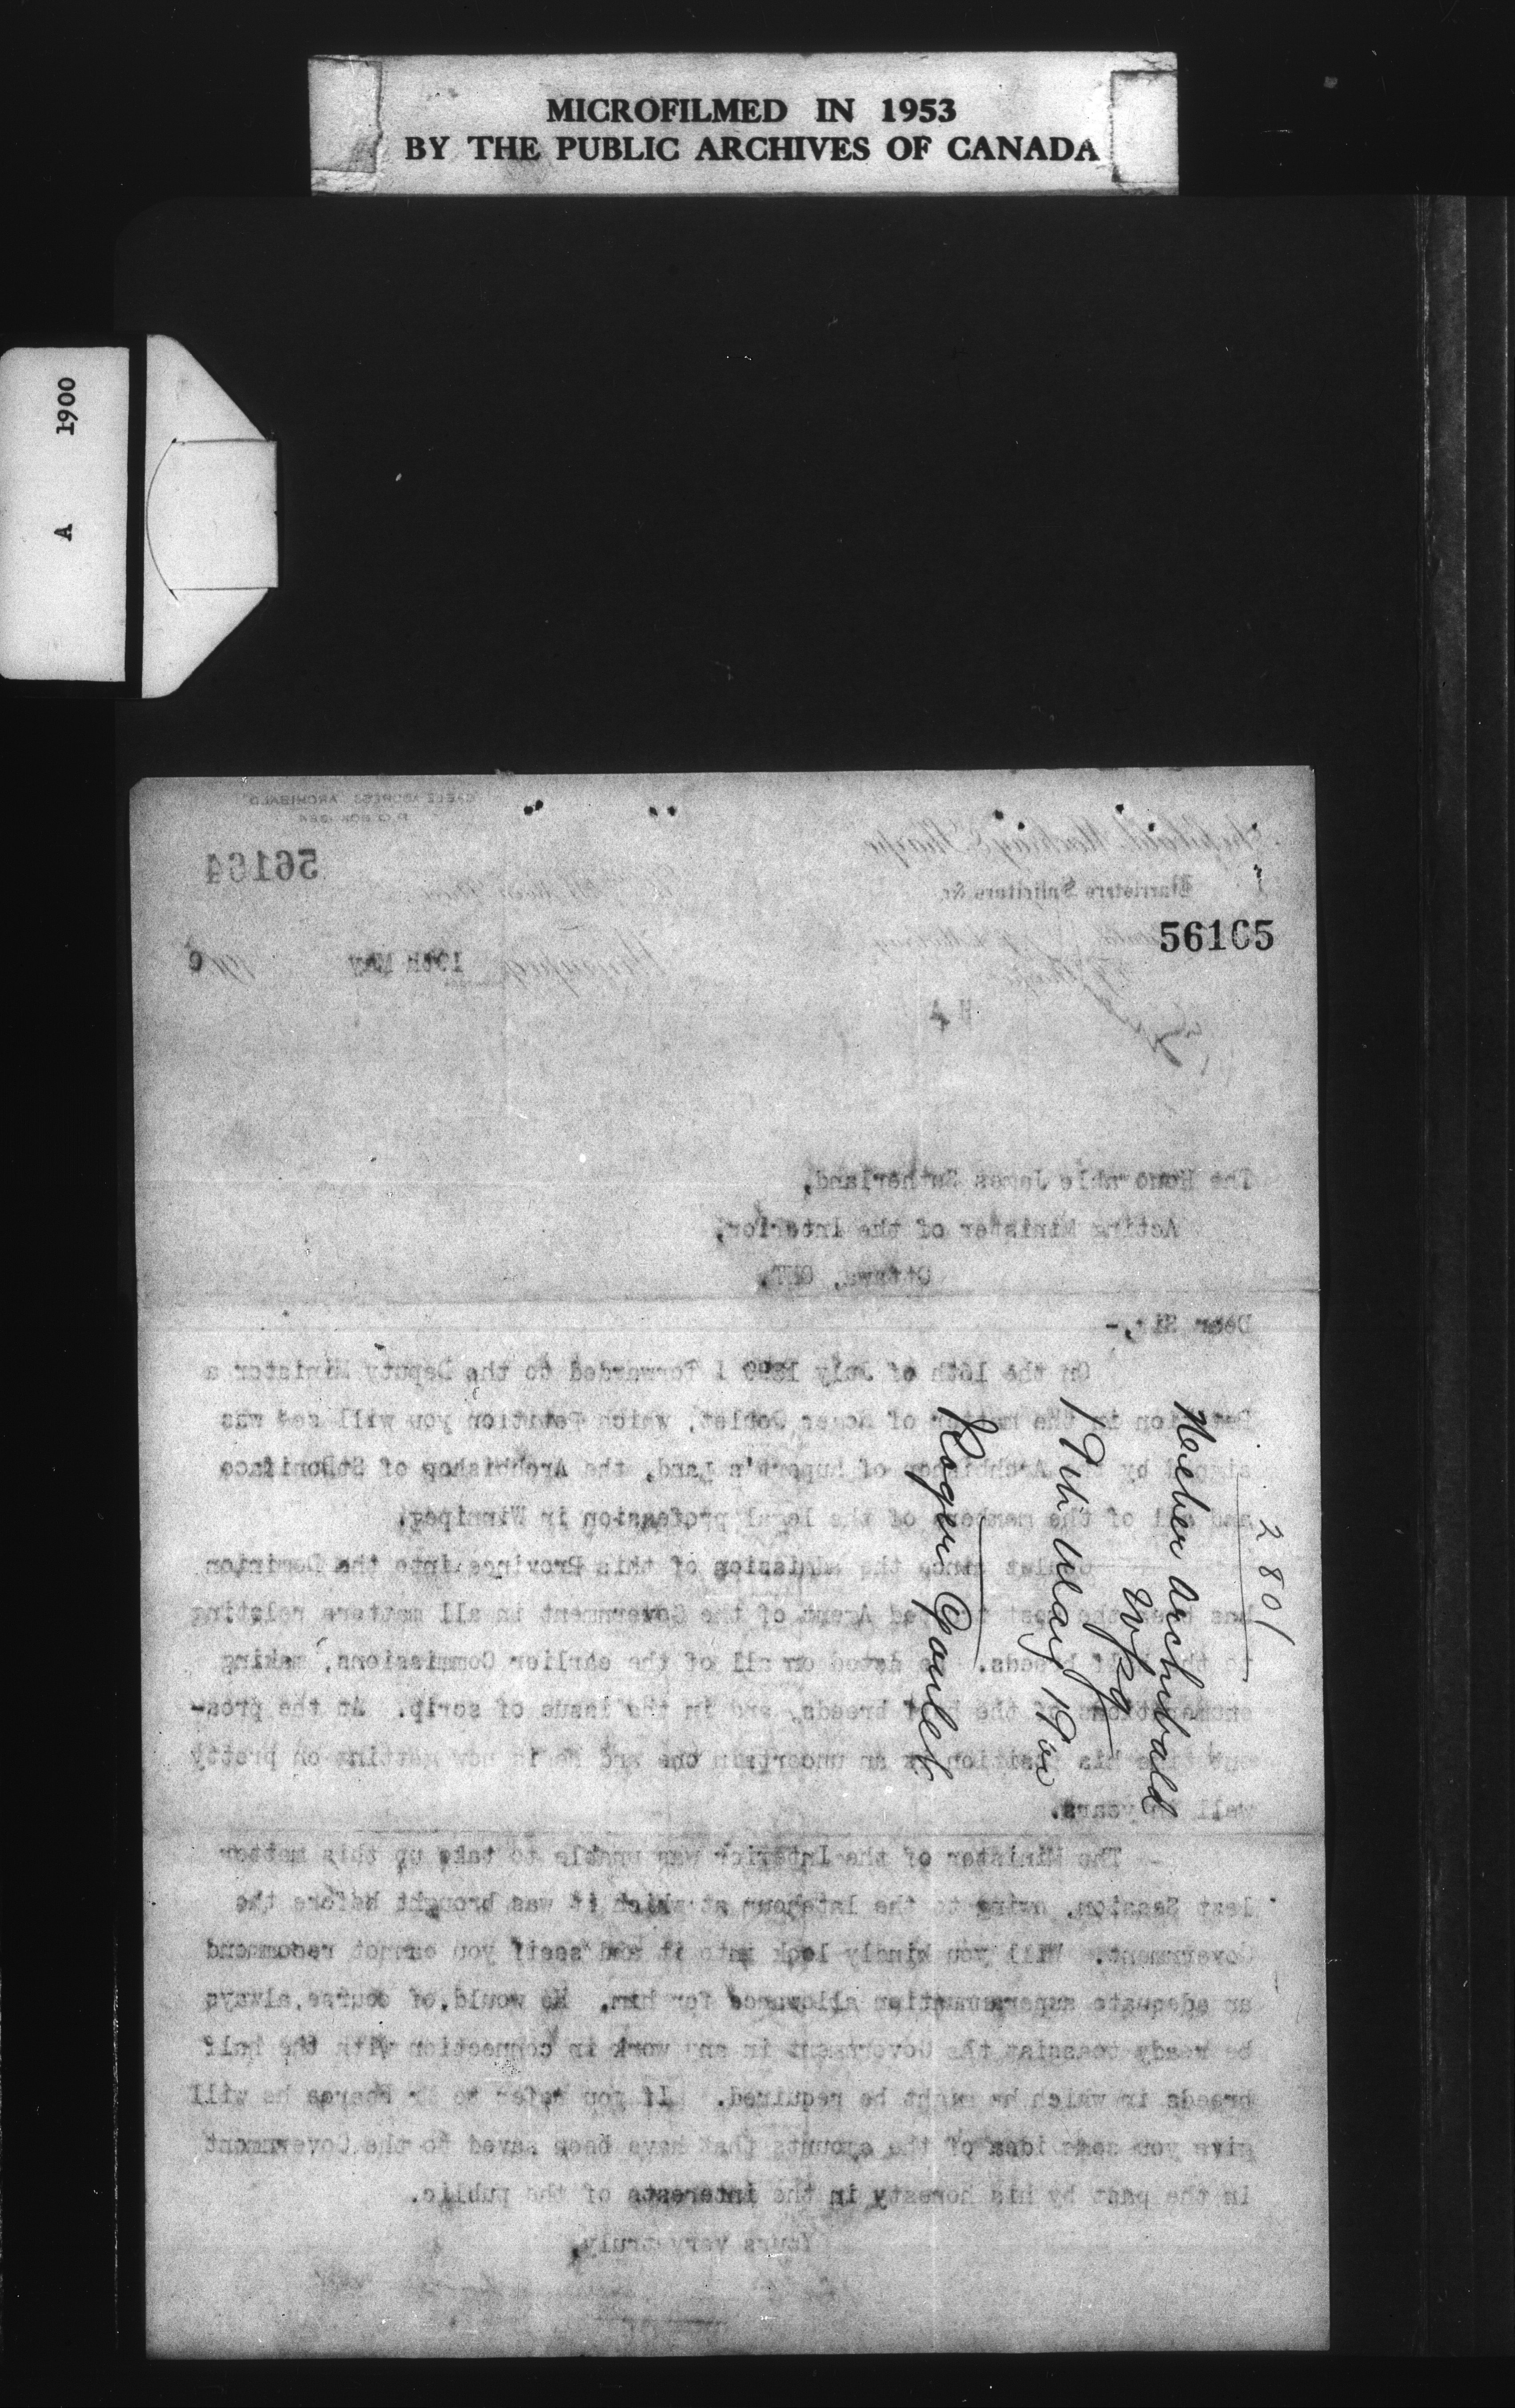 MICROFILMED IN 1953
BY THE PUBLIC ARCHIVES OF CANADA
A 1900
CABLE ADDRESS ARCHIBALD
P.O. BOX 1284
56164
Archibald, Machray & Sharpe
Barristers Solicitors &c.
56165
Winnipeg 19th May 1900
H A
The Honorable James Sutherland,
Acting Minister of the Interior,
Ottawa, ONT.
Dear Sir,-
On the 16th of July 1899 I forwarded to the Deputy Minister a
Petition in the matter of Roger Goulet, which Petition you will see was
signed by the Archbishop of Rupert's Land, the Archbishop of St.Boniface
and all of the members of the legal profession in Winnipeg.
Goulet since the admission of this Province into the Dominion
has been the most trusted Agent of the Government in all matters relating
to the half breeds. He acted on all of the earlier Commissions, making
enumerations of the half breeds, and in the issue of scrip. At the pres-
ent time his position is an uncertain one and he is now getting on pretty
well in years.
The Minister of the Interior was unable to take up this matter
last Session, owing to the late hour at which it was brought before the
Government. Will you kindly look into it and see if you cannot recommend
an adequate superannuation allowance for him. He would, of course, always
be ready to assist the Government in any work in connection with the half
breeds in which he might be required. If you refer to Mr he will
give you some idea of the amounts that have been saved to the Government
in the past by his honesty in the interests of the public.
Yours very truly,
2801
Heber Archibald
Wpg
19th May 1900
Roger Goulet